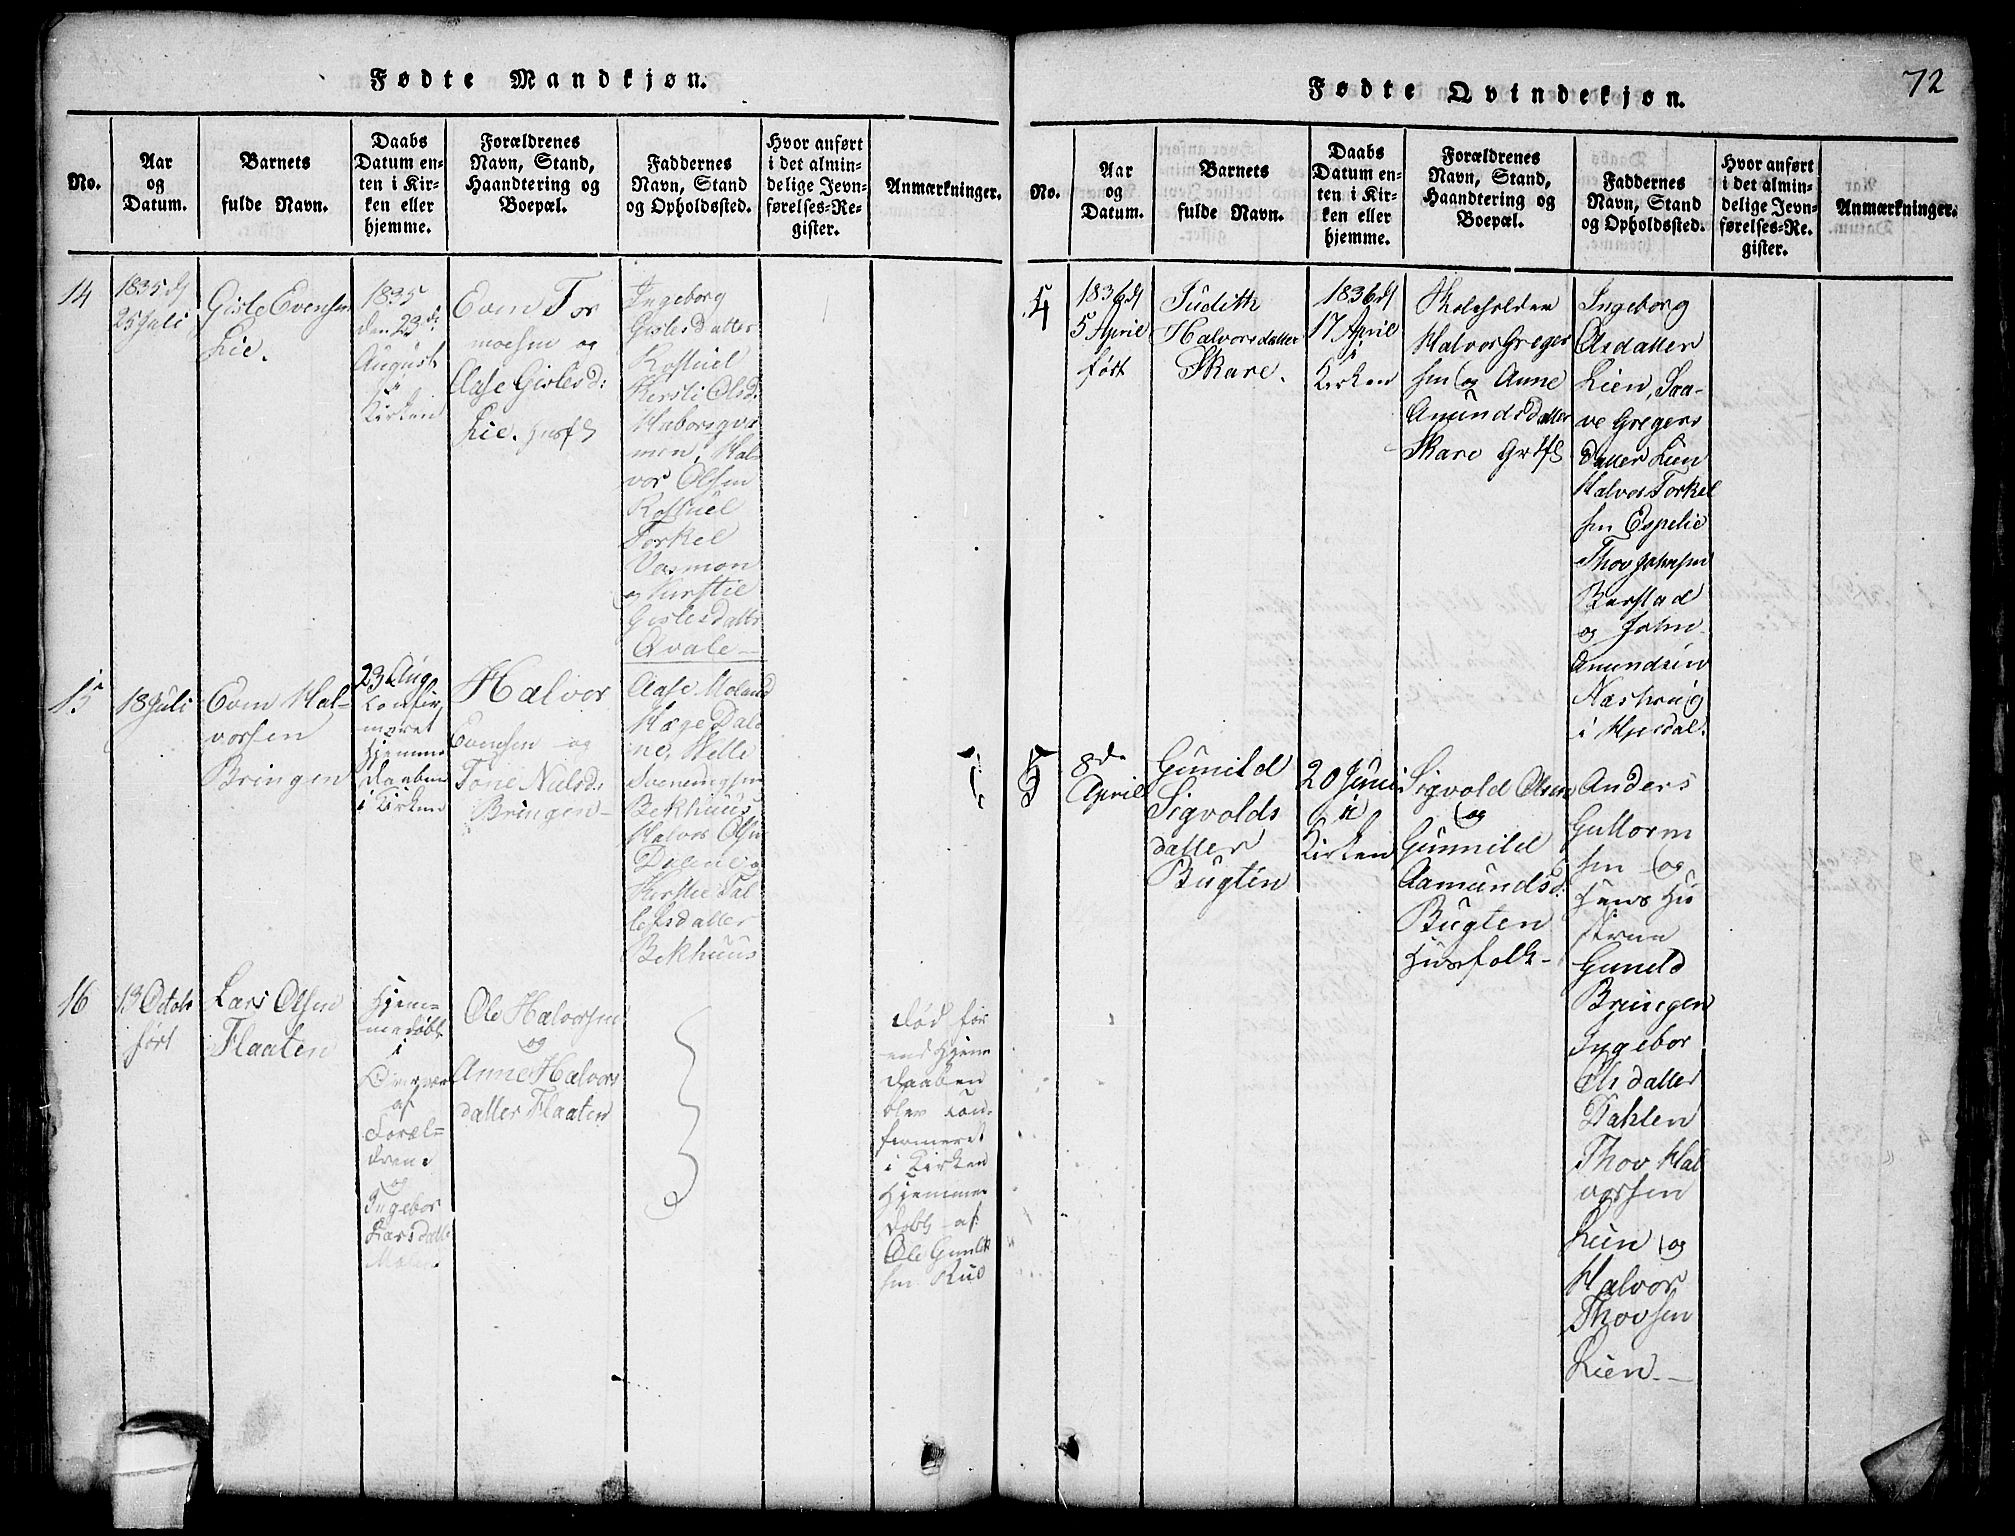 Fødte Mandkjøn.
No.
Aar
og
Datum.
Barnets
fulde Navn.
Daabs
Datum en-
ten i Kir-
ken eller
hjemme.
Forældrenes
Navn, Stand,
Haandtering og
Boepæl.
Faddernes
Navn, Stand
og Opholdssted.
Hvor anført
i det almin-
delige Jevn-
førelses-Re-
gister.
Anmærkninger.
14
1835 d
25 Juli
Gisle Evensen
Lie.
1835
den 23 d:
August
i
Kirken
Even Tor
moesen og
Aase Gislesd:
Lie. Husf
Ingeborg
Gislesdatter
Rossuel
Kersti Olsd:
Haborgv
men, Hal
vor Olsen
Rossuel
Torkel
Vasmon
og Kirstie
Gislesdatter
Qvale
15
18 Juli
Even Hal-
vorsen
Bringen
23 Aug
Confir
meret
Hjemme
daaben
i Kirken
Halvor
Evensen og
Tone Nielsd:
Bringen
Aase Moland
Hæge Dale
ne, Helle
Svenungsen
Bekhuus
Halvor Olsen
Kirstie Tal
lefsdatter
Bekhuus
16
13 Octob
født
Lars Olsen
Flaaten
Hjem-
medøbt
i
af
Foræl-
drene
og
Ingebor
Larsdatter
Ole Halvorsen
og
Anne Halvors
datter Flaaten
død før
end Hjem
daaben
blev Con-
firmeret
i Kirken
Hjemme
døbt af
Ole Gunlek
sen Rud
72
Fødte Qvindekjøn.
No.
Aar
og
Datum.
Barnets
fulde Navn.
Daabs
Datum en-
ten i Kir-
ken eller
hjemme.
Forældrenes
Navn, Stand,
Haandtering og
Boepæl.
Faddernes
Navn, Stand
og Opholdssted.
Hvor anført
i det almin-
delige Jevn-
førelses-Re-
gister.
Anmærkninger.
4
1836 d
5 April
født
Judith
Halvorsdatter
Skare.
1836 d
17 April
i
Kirken
Skoleholder
Halvor Greger
sen og Anne
Amundsdatter
Skare
Ingeborg
Asdatter
Lien, Saa-
ve Gregers
datter Lien
Halvor Torkel
sen Espelie
Thov Johnsen
Barstad
og John
Amundsen
i Hjerdal.
5
8de
April
Gunild
Sigvolds
datter
Bugten
20 Juni
i
Kirken
Sigvold Olsen
og
Gunnild
Aamundsd:
Bugten
Huusfolk
Anders
Guttorm
sen og
Hans Hu
strue
Guneld
Bringen
Ingebor
Olsdatter
Dahlen
Thov Hal
vorsen
Lien og
Halvor
Thovsen
Lien